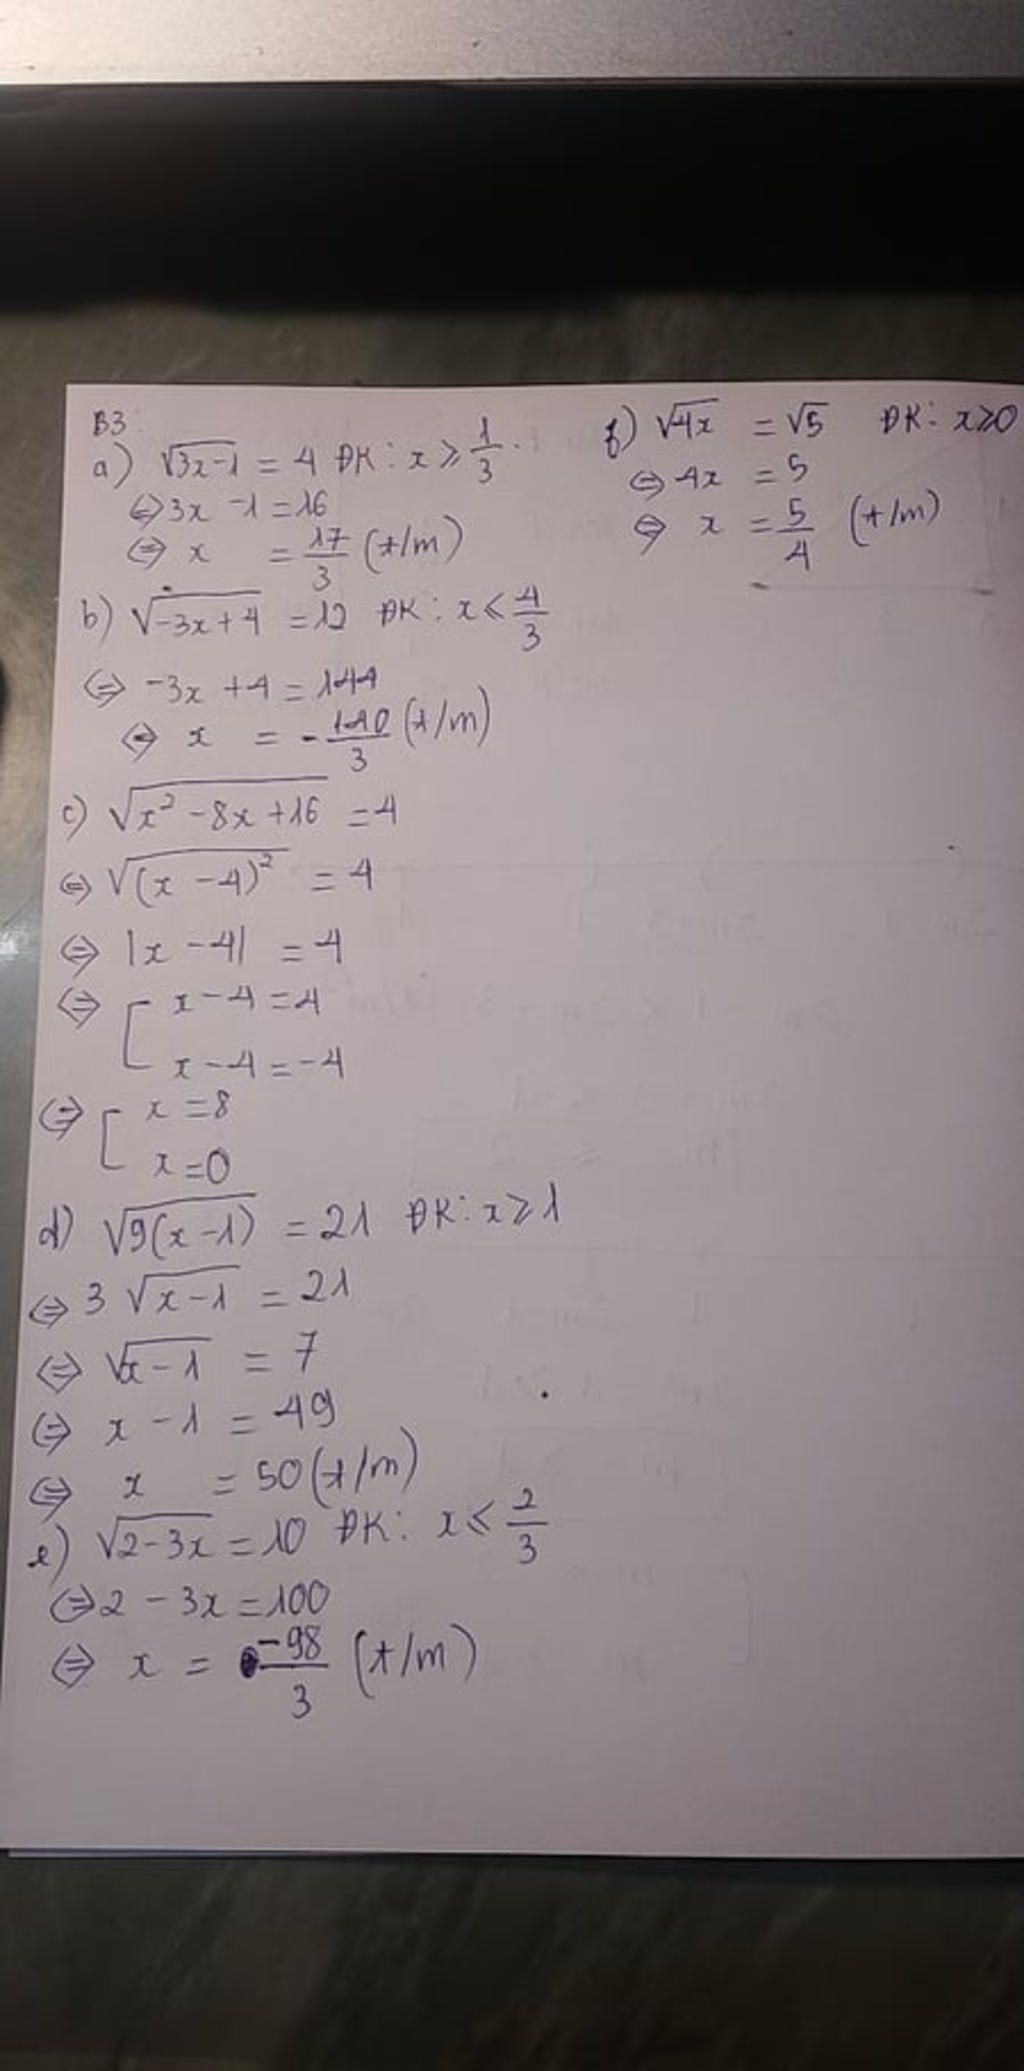 B3:
a) √(3x-1) = 4 ĐK: x ≥ 1/3.
⇔ 3x - 1 = 16
⇔ x = 17/3 (t/m)
b) √(-3x+4) = 12 ĐK: x ≤ 4/3
⇔ -3x + 4 = 144
⇔ x = -140/3 (t/m)
c) √(x² - 8x + 16) = 4
⇔ √((x - 4)²) = 4
⇔ |x - 4| = 4
⇔ [ x - 4 = 4
x - 4 = -4
⇔ [ x = 8
x = 0
d) √(9(x - 1)) = 21 ĐK: x ≥ 1
⇔ 3 √(x - 1) = 21
⇔ √(x - 1) = 7
⇔ x - 1 = 49
⇔ x = 50 (t/m)
e) √(2 - 3x) = 10 ĐK: x ≤ 2/3
⇔ 2 - 3x = 100
⇔ x = -98/3 (t/m)
f) √(4x) = √5 ĐK: x ≥ 0
⇔ 4x = 5
⇔ x = 5/4 (t/m)